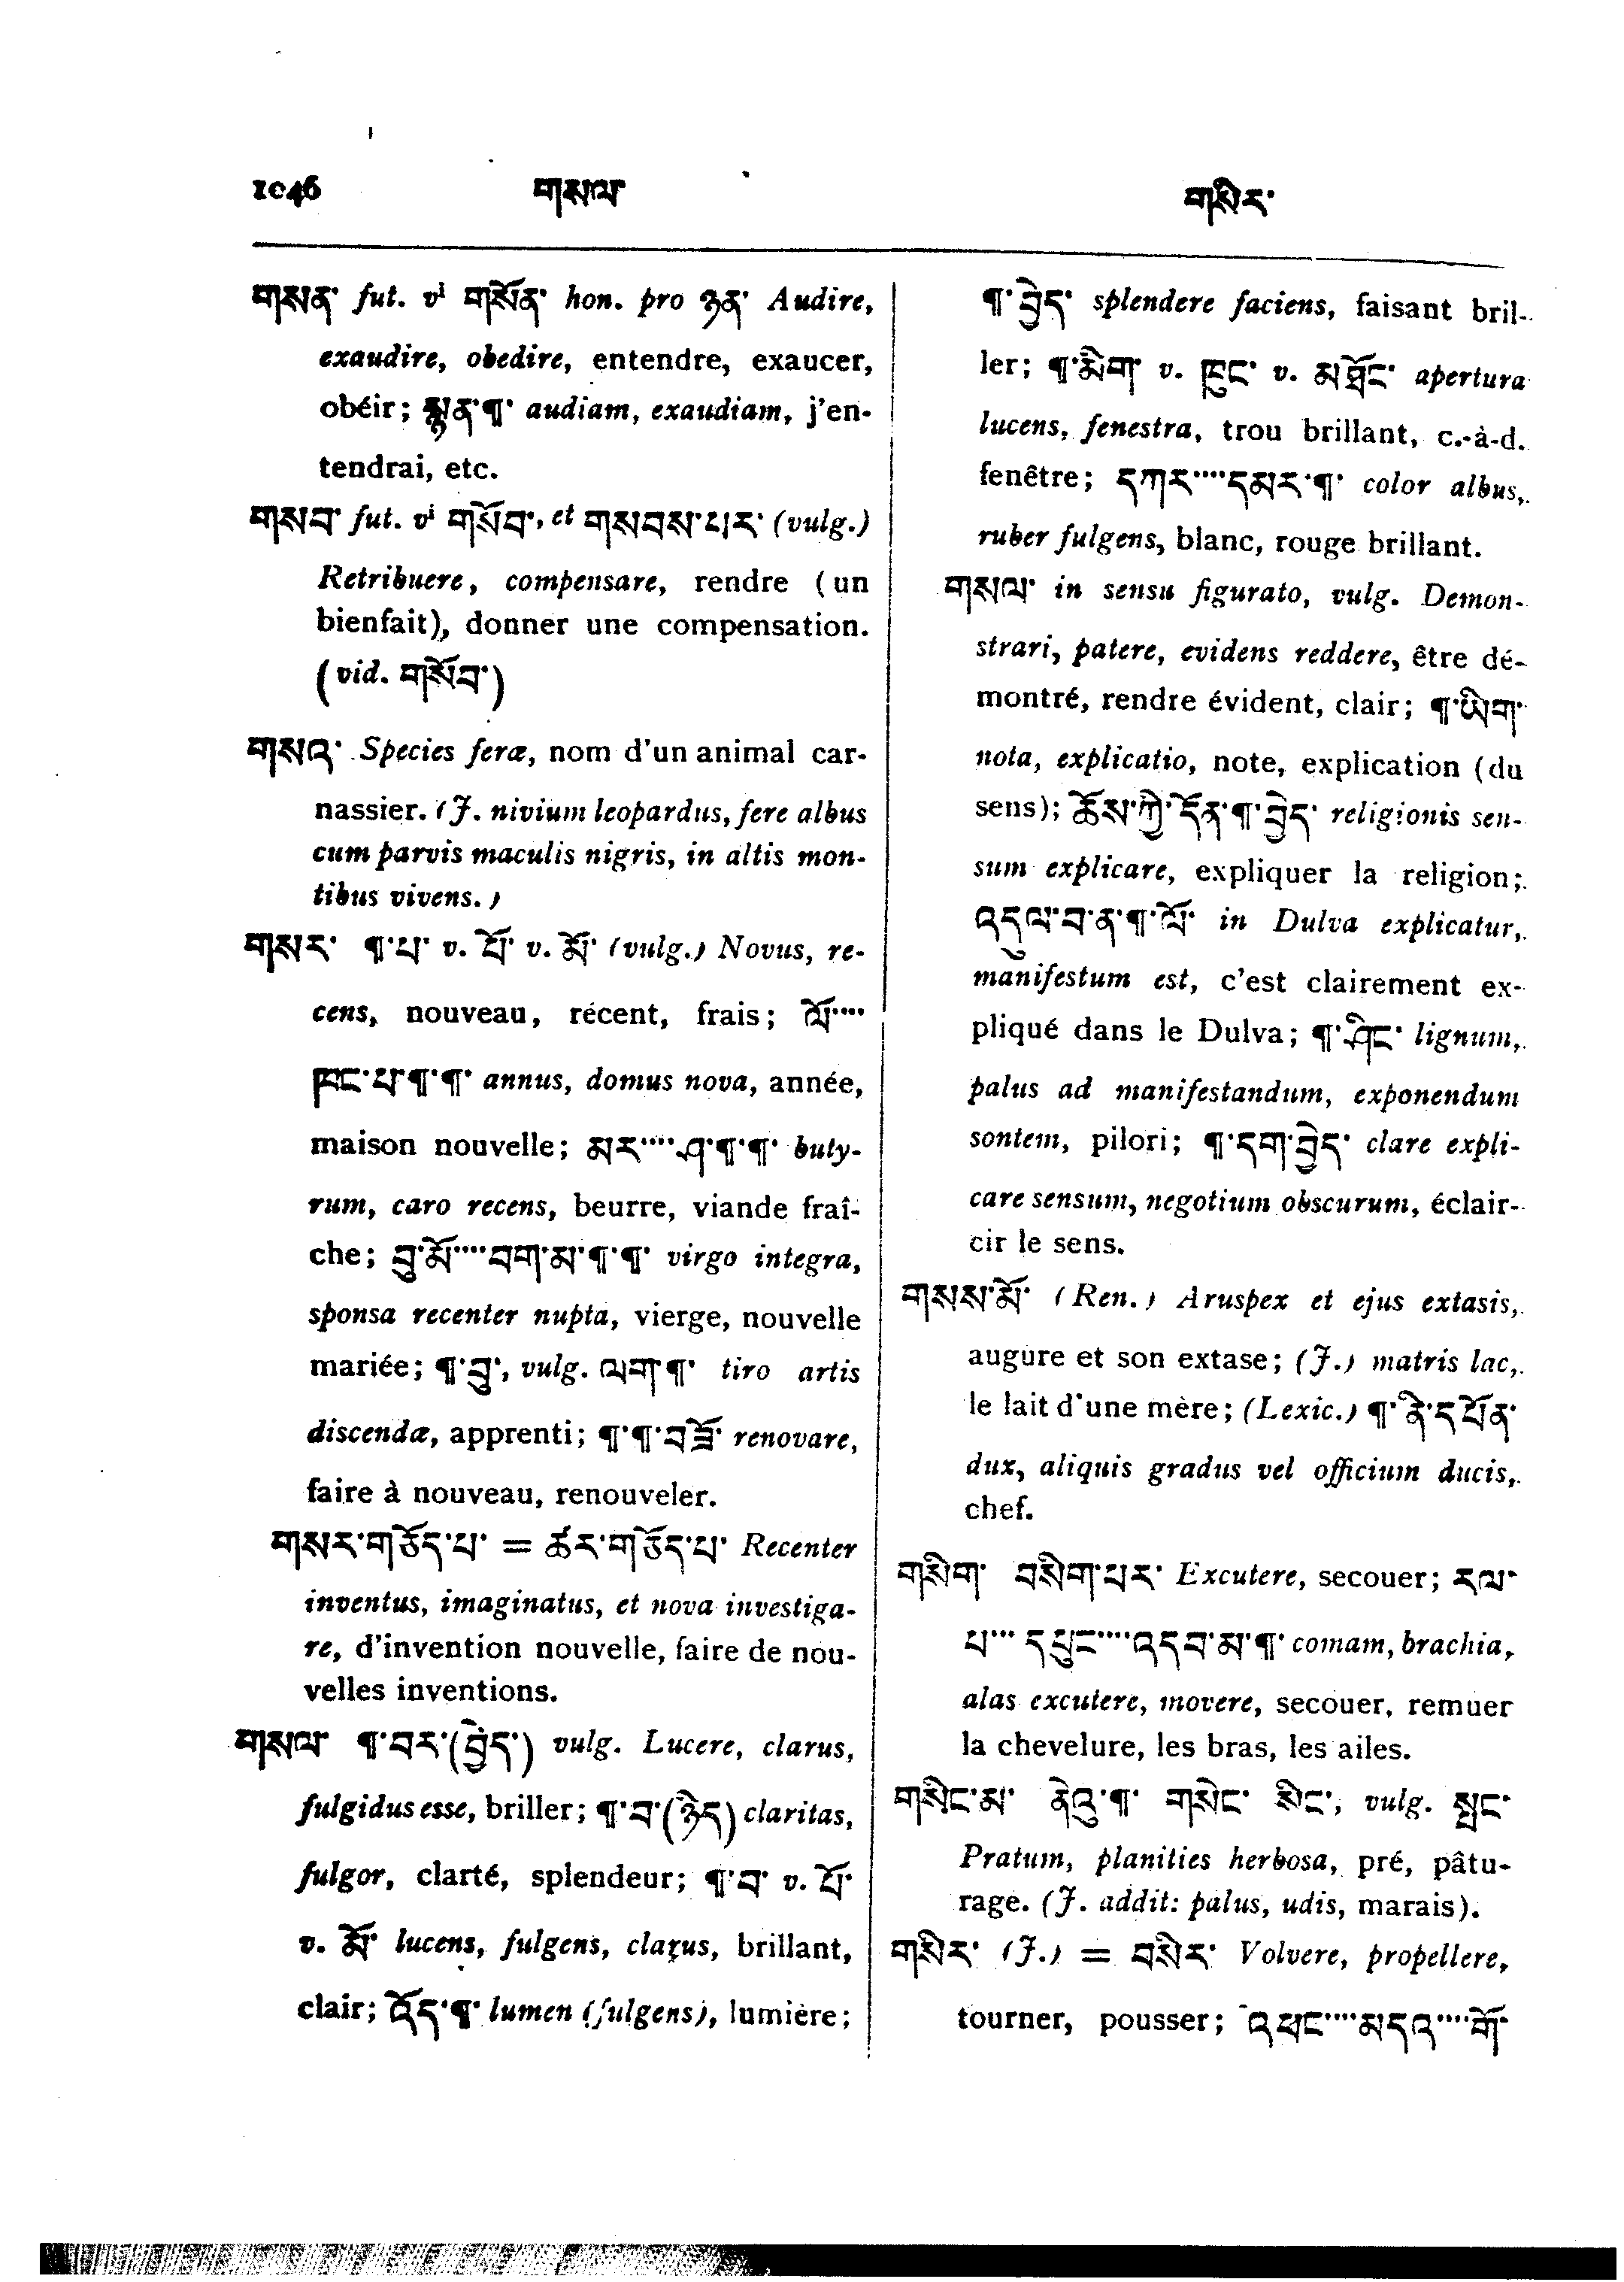 1046 གསལ་ གསིར་
གསན་ fut. vi གསོན་ hon. pro ཉན་ Audire,
exaudire, obedire, entendre, exaucer,
obéir; སྙན་¶་ audiam, exaudiam, j'en-
tendrai, etc.
གསབ་ fut. vi གསོབ་, et གསབས་པར་ (vulg.)
Retribuere, compensare, rendre (un
bienfait), donner une compensation.
(vid. གསོབ་)
གསའ་ Species feræ, nom d'un animal car-
nassier. (J. nivium leopardus, fere albus
cum parvis maculis nigris, in altis mon-
tibus vivens.)
གསར་ ¶་པ་ v. པོ་ v. མོ་ (vulg.) Novus, re-
cens, nouveau, récent, frais; ལོ་...
ཁང་པ་¶་¶་ annus, domus nova, année,
maison nouvelle; མར་....ཤ་¶་¶་¶་ buty-
rum, caro recens, beurre, viande fraî-
che; བུ་མོ་....བག་མ་¶་¶་ virgo integra,
sponsa recenter nupta, vierge, nouvelle
mariée; ¶་བུ་, vulg. ལག་¶་ tiro artis
discendæ, apprenti; ¶་¶་བཟོ་ renovare,
faire à nouveau, renouveler.
གསར་གཙོད་པ་ = ཚར་གཙོད་པ་ Recenter
inventus, imaginatus, et nova investiga-
re, d'invention nouvelle, faire de nou-
velles inventions.
གསལ་ ¶་བར་(བྱེད་) vulg. Lucere, clarus,
fulgidus esse, briller; ¶་བ་(ཉེད) claritas,
fulgor, clarté, splendeur; ¶་བ་ v. པོ་
v. མོ་ lucens, fulgens, clarus, brillant,
clair; འོད་¶་ lumen (fulgens), lumière;
¶་བྱེད་ splendere faciens, faisant bril-
ler; ¶་མིག་ v. ཁུང་ v. མཐོང་ apertura
lucens, fenestra, trou brillant, c.-à-d.
fenêtre; དཀར་....དམར་¶་ color albus,
ruber fulgens, blanc, rouge brillant.
གསལ་ in sensu figurato, vulg. Demon-
strari, patere, evidens reddere, être dé-
montré, rendre évident, clair; ¶་ཡིག་
nota, explicatio, note, explication (du
sens); ཆོས་ཀྱི་དོན་¶་བྱེད་ religionis sen-
sum explicare, expliquer la religion;
འདུལ་བ་ན་¶་ལོ་ in Dulva explicatur,
manifestum est, c'est clairement ex-
pliqué dans le Dulva; ¶་ཤིང་ lignum,
palus ad manifestandum, exponendum
sontem, pilori; ¶་དག་བྱེད་ clare expli-
care sensum, negotium obscurum, éclair-
cir le sens.
གསས་མོ་ (Ren.) Aruspex et ejus extasis,
augure et son extase; (J.) matris lac,
le lait d'une mère; (Lexic.) ¶་ནི་དཔོན་
dux, aliquis gradus vel officium ducis,
chef.
གསིག་ བསིག་པར་ Excutere, secouer; རལ་
པ་... དཔུང་....འདབ་མ་¶་ comam, brachia,
alas excutere, movere, secouer, remuer
la chevelure, les bras, les ailes.
གསིང་མ་ ནེའུ་¶་ གསེང་ སིང་, vulg. སྤང་
Pratum, planities herbosa, pré, pâtu-
rage. (J. addit: palus, udis, marais).
གསིར་ (J.) = བསིར་ Volvere, propellere,
tourner, pousser; འཕང་....མདའ་....གོ་